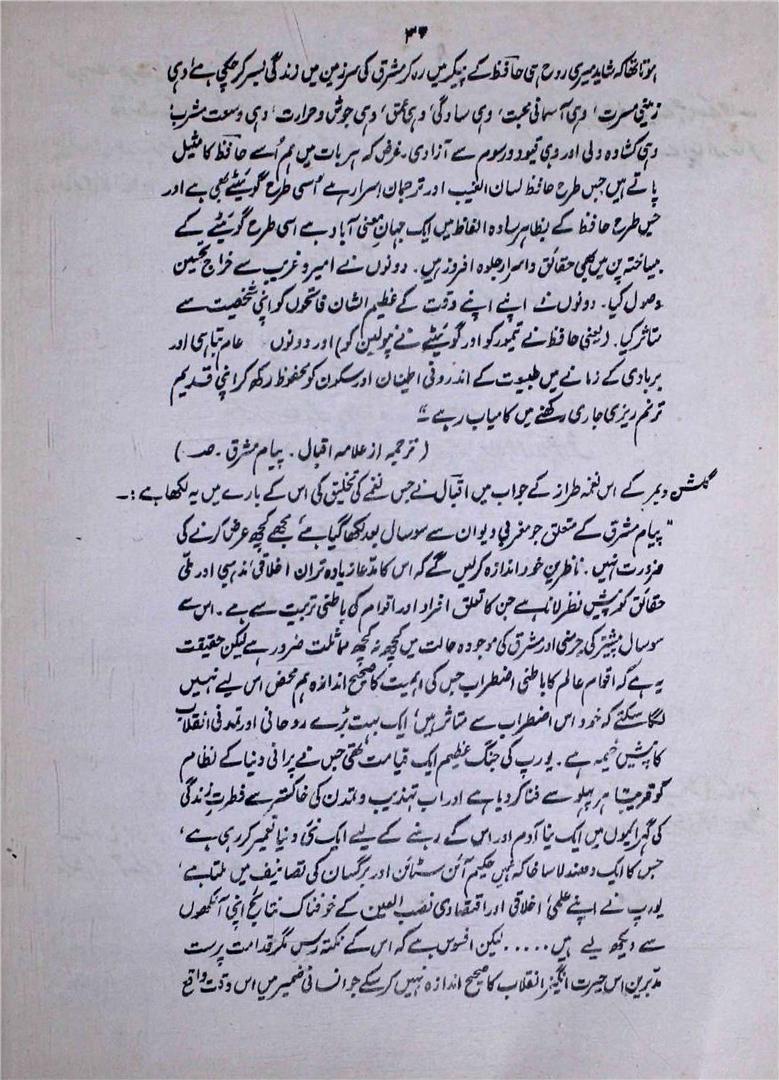 ۳۴
ہوتا تھا کہ شاید میری روح ہی حافظ کے پیکر میں رہ کر مشرق کی سرزمین میں زندگی بسر کر چکی ہے، وہی
زمینی مسرت، وہی آسمانی محبت، وہی سادگی، وہی عمق، وہی جوش و حرارت، وہی وسعت مشرب،
وہی کشادہ دلی اور وہی قیود و رسوم سے آزادی۔ غرض کہ ہر بات میں ہم اُسے حافظ کا مثیل
پاتے ہیں جس طرح حافظ لسان الغیب اور ترجمان اسرار ہے اسی طرح گوئٹے بھی ہے اور
جس طرح حافظ کے بظاہر سادہ الفاظ میں ایک جہان معنی آباد ہے اسی طرح گوئٹے کے
بیساختہ پن میں بھی حقائق و اسرار جلوہ افروز ہیں۔ دونوں نے امیر و غریب سے خراج تحسین
وصول کیا۔ دونوں نے اپنے اپنے وقت کے عظیم الشان فاتحوں کو اپنی شخصیت سے
متاثر کیا۔ (یعنی حافظ نے تیمور کو اور گوئٹے نے نپولین کو) اور دونوں عام تباہی اور
بربادی کے زمانے میں طبیعت کے اندرونی اطمینان اور سکون کو محفوظ رکھ کر اپنی قدیم
ترنم ریزی جاری رکھنے میں کامیاب رہے۔"
(ترجمہ از علامہ اقبال۔ پیام مشرق۔ صـ )
گلشن ویمر کے اس نغمہ طراز کے جواب میں اقبال نے جس نغمے کی تخلیق کی اس کے بارے میں یہ لکھا ہے:۔
"پیام مشرق کے متعلق جو مغربی دیوان سے سو سال بعد لکھا گیا ہے، مجھے کچھ عرض کرنے کی
ضرورت نہیں۔ ناظرین خود اندازہ کرلیں گے کہ اس کا مدّعا زیادہ تر ان اخلاقی، مذہبی اور ملّی
حقائق کو پیش نظر لانا ہے جن کا تعلق افراد اور اقوام کی باطنی تربیت سے ہے۔ اس سے
سو سال پیشتر کی جرمنی اور مشرق کی موجودہ حالت میں کچھ نہ کچھ مماثلت ضرور ہے لیکن حقیقت
یہ ہے کہ اقوام عالم کا باطنی اضطراب جس کی اہمیت کا صحیح اندازہ ہم محض اس لیے نہیں
لگا سکتے کہ خود اس اضطراب سے متاثر ہیں، ایک بہت بڑے روحانی اور تمدنی انقلاب
کا پیش خیمہ ہے۔ یورپ کی جنگ عظیم ایک قیامت تھی جس نے پرانی دنیا کے نظام
کو قریباً ہر پہلو سے فنا کر دیا ہے اور اب تہذیب و تمدن کی خاکستر سے فطرت زندگی
کی گہرائیوں میں ایک نیا آدم اور اس کے رہنے کے لیے ایک نئی دنیا تعمیر کر رہی ہے،
جس کا ایک دھندلا سا خاکہ ہمیں حکیم آئن سٹائن اور برگسان کی تصانیف میں ملتا ہے،
یورپ نے اپنے علمی، اخلاقی اور اقتصادی نصب العین کے خوفناک نتائج اپنی آنکھوں
سے دیکھ لیے ہیں ..... لیکن افسوس ہے کہ اس کے نکتہ رس مگر قدامت پرست
مدبرین اس حیرت انگیز انقلاب کا صحیح اندازہ نہیں کر سکے جو انسانی ضمیر میں اس وقت واقع